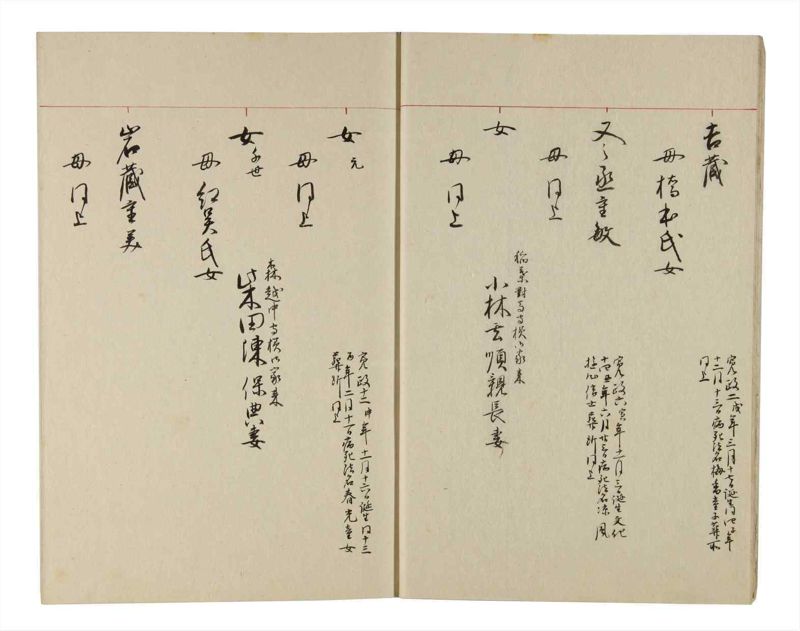 吉蔵
母 橋本氏女
寛政二戌年三月十七日誕生同四子年
十二月十三日病死法名梅香童子葬所
同上
又之丞重敏
母 同上
寛政六寅年十一月三日誕生文化
十四丑年六月廿三日病死法名凉風
信士葬所同上
女
母 同上
稲葉對馬守様御家来
小林玄順親長妻
女 元
母 同上
寛政十二申年十一月十六日誕生同十三
酉年二月十一日病死法名春光童女
葬所同上
女 千世
母 紅吴氏女
森越中守様御家来
柴田陳保典妻
岩蔵重美
母 同上